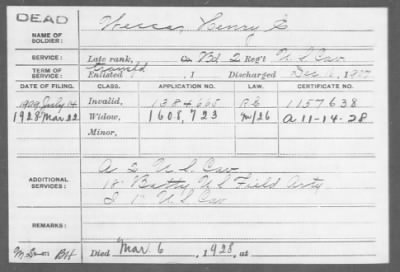 DEAD
NAME OF SOLDIER: Henry C
SERVICE: Late rank, Co. Bd 2 Reg't U S Cav
TERM OF SERVICE: Enlisted , 1 Discharged Dec , 190
DATE OF FILING. CLASS. APPLICATION NO. LAW. CERTIFICATE NO.
1909 July 14 Invalid, 1384665 1157638
1928 Mar 22 Widow, 1608,723 M/26 A 11-14-28
Minor,
ADDITIONAL SERVICES: A 2 U S Cav
18" Batty U S Field Arty
I 1" U S Cav
REMARKS:
Died Mar 6 , 1928, at